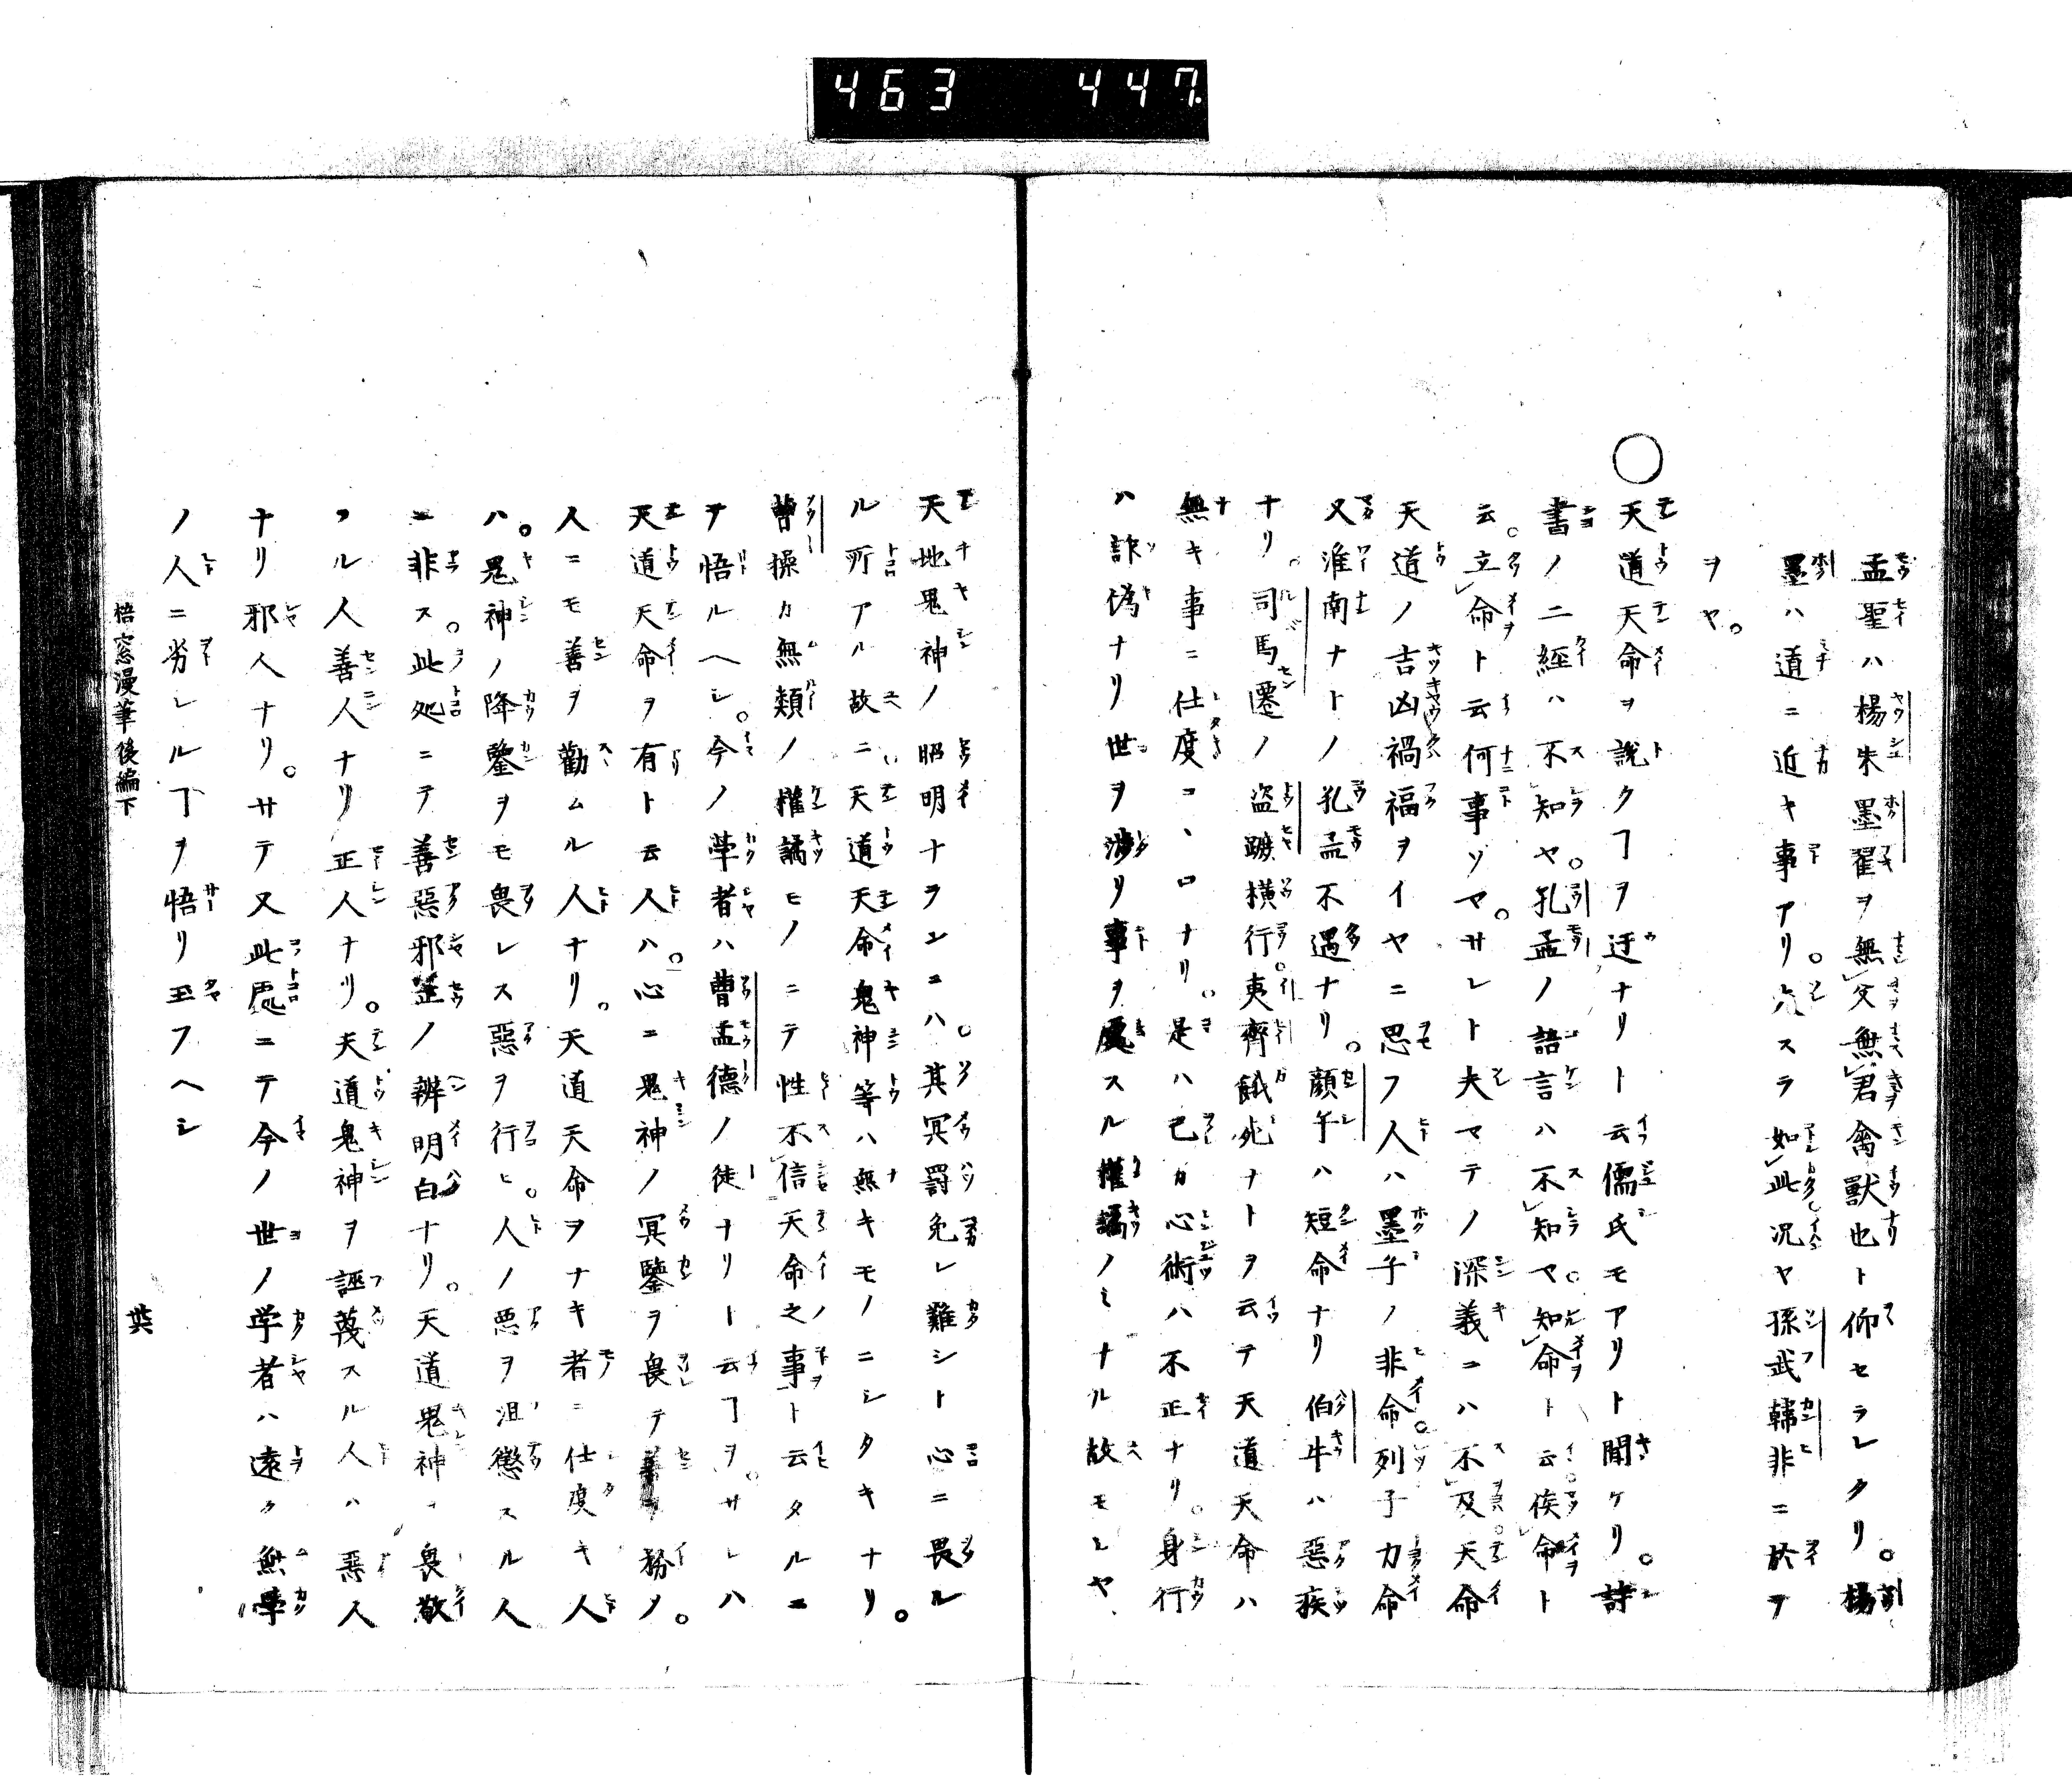 463 447
孟聖ハ楊朱墨翟ヲ無父無君禽獣也ト仰セラレタリ。楊
墨ハ道ニ近キ事アリ。六スラ如此況ヤ孫武韓非ニ於テ
ヲヤ。
○天道天命ヲ説クヿヲ迂ナリト云儒氏モアリト聞ケリ。詩
書ノ二経ハ不知ヤ。孔孟ノ語言ハ不知ヤ。知命ト云俟命ト
云。立命ト云何事ソヤ。サレト夫マテノ深義ニハ不及天命
天道ノ吉凶禍福ヲイヤニ思フ人ハ墨子ノ非命列子力命
又淮南ナトノ孔孟不遇ナリ。顔子ハ短命ナリ伯牛ハ惡疾
ナリ。司馬遷ノ盗蹠横行。夷齊餓死ナトヲ云テ天道天命ハ
無キ事ニ仕度コヽロナリ。是ハ己カ心術ハ不正ナリ。身行
ハ詐偽ナリ世ヲ渉リ事ヲ處スル權譎ノミナル故モシヤ
天地鬼神ノ昭明ナラシニハ。其冥罰免レ難シト心ニ畏ル
ル所アル故ニ天道天命鬼神等ハ無キモノニシタキナリ。
曹操カ無類ノ權譎モノニテ性不信天命之事ト云タルニ
テ悟ルヘシ。今ノ學者ハ曹孟德ノ徒ナリト云ヿヲ。サレハ
天道天命ヲ有ト云人ハ。心ニ鬼神ノ冥鑒ヲ畏テ善ヲ務ノ。
人ニモ善ヲ勸ムル人ナリ。天道天命ヲナキ者ニ仕度キ人
ハ。鬼神ノ降鑒ヲモ畏レス惡ヲ行ヒ。人ノ悪ヲ沮懲スル人
ニ非ス。此処ニテ善惡邪正ノ辨明白ナリ。天道鬼神ヲ畏敬
スル人善人ナリ正人ナリ。天道鬼神ヲ誣蔑スル人ハ惡人
ナリ邪人ナリ。サテ又此處ニテ今ノ世ノ学者ハ遠ク無學
ノ人ニ劣レルヿヲ悟リ玉フヘシ
梧窓漫筆後編下